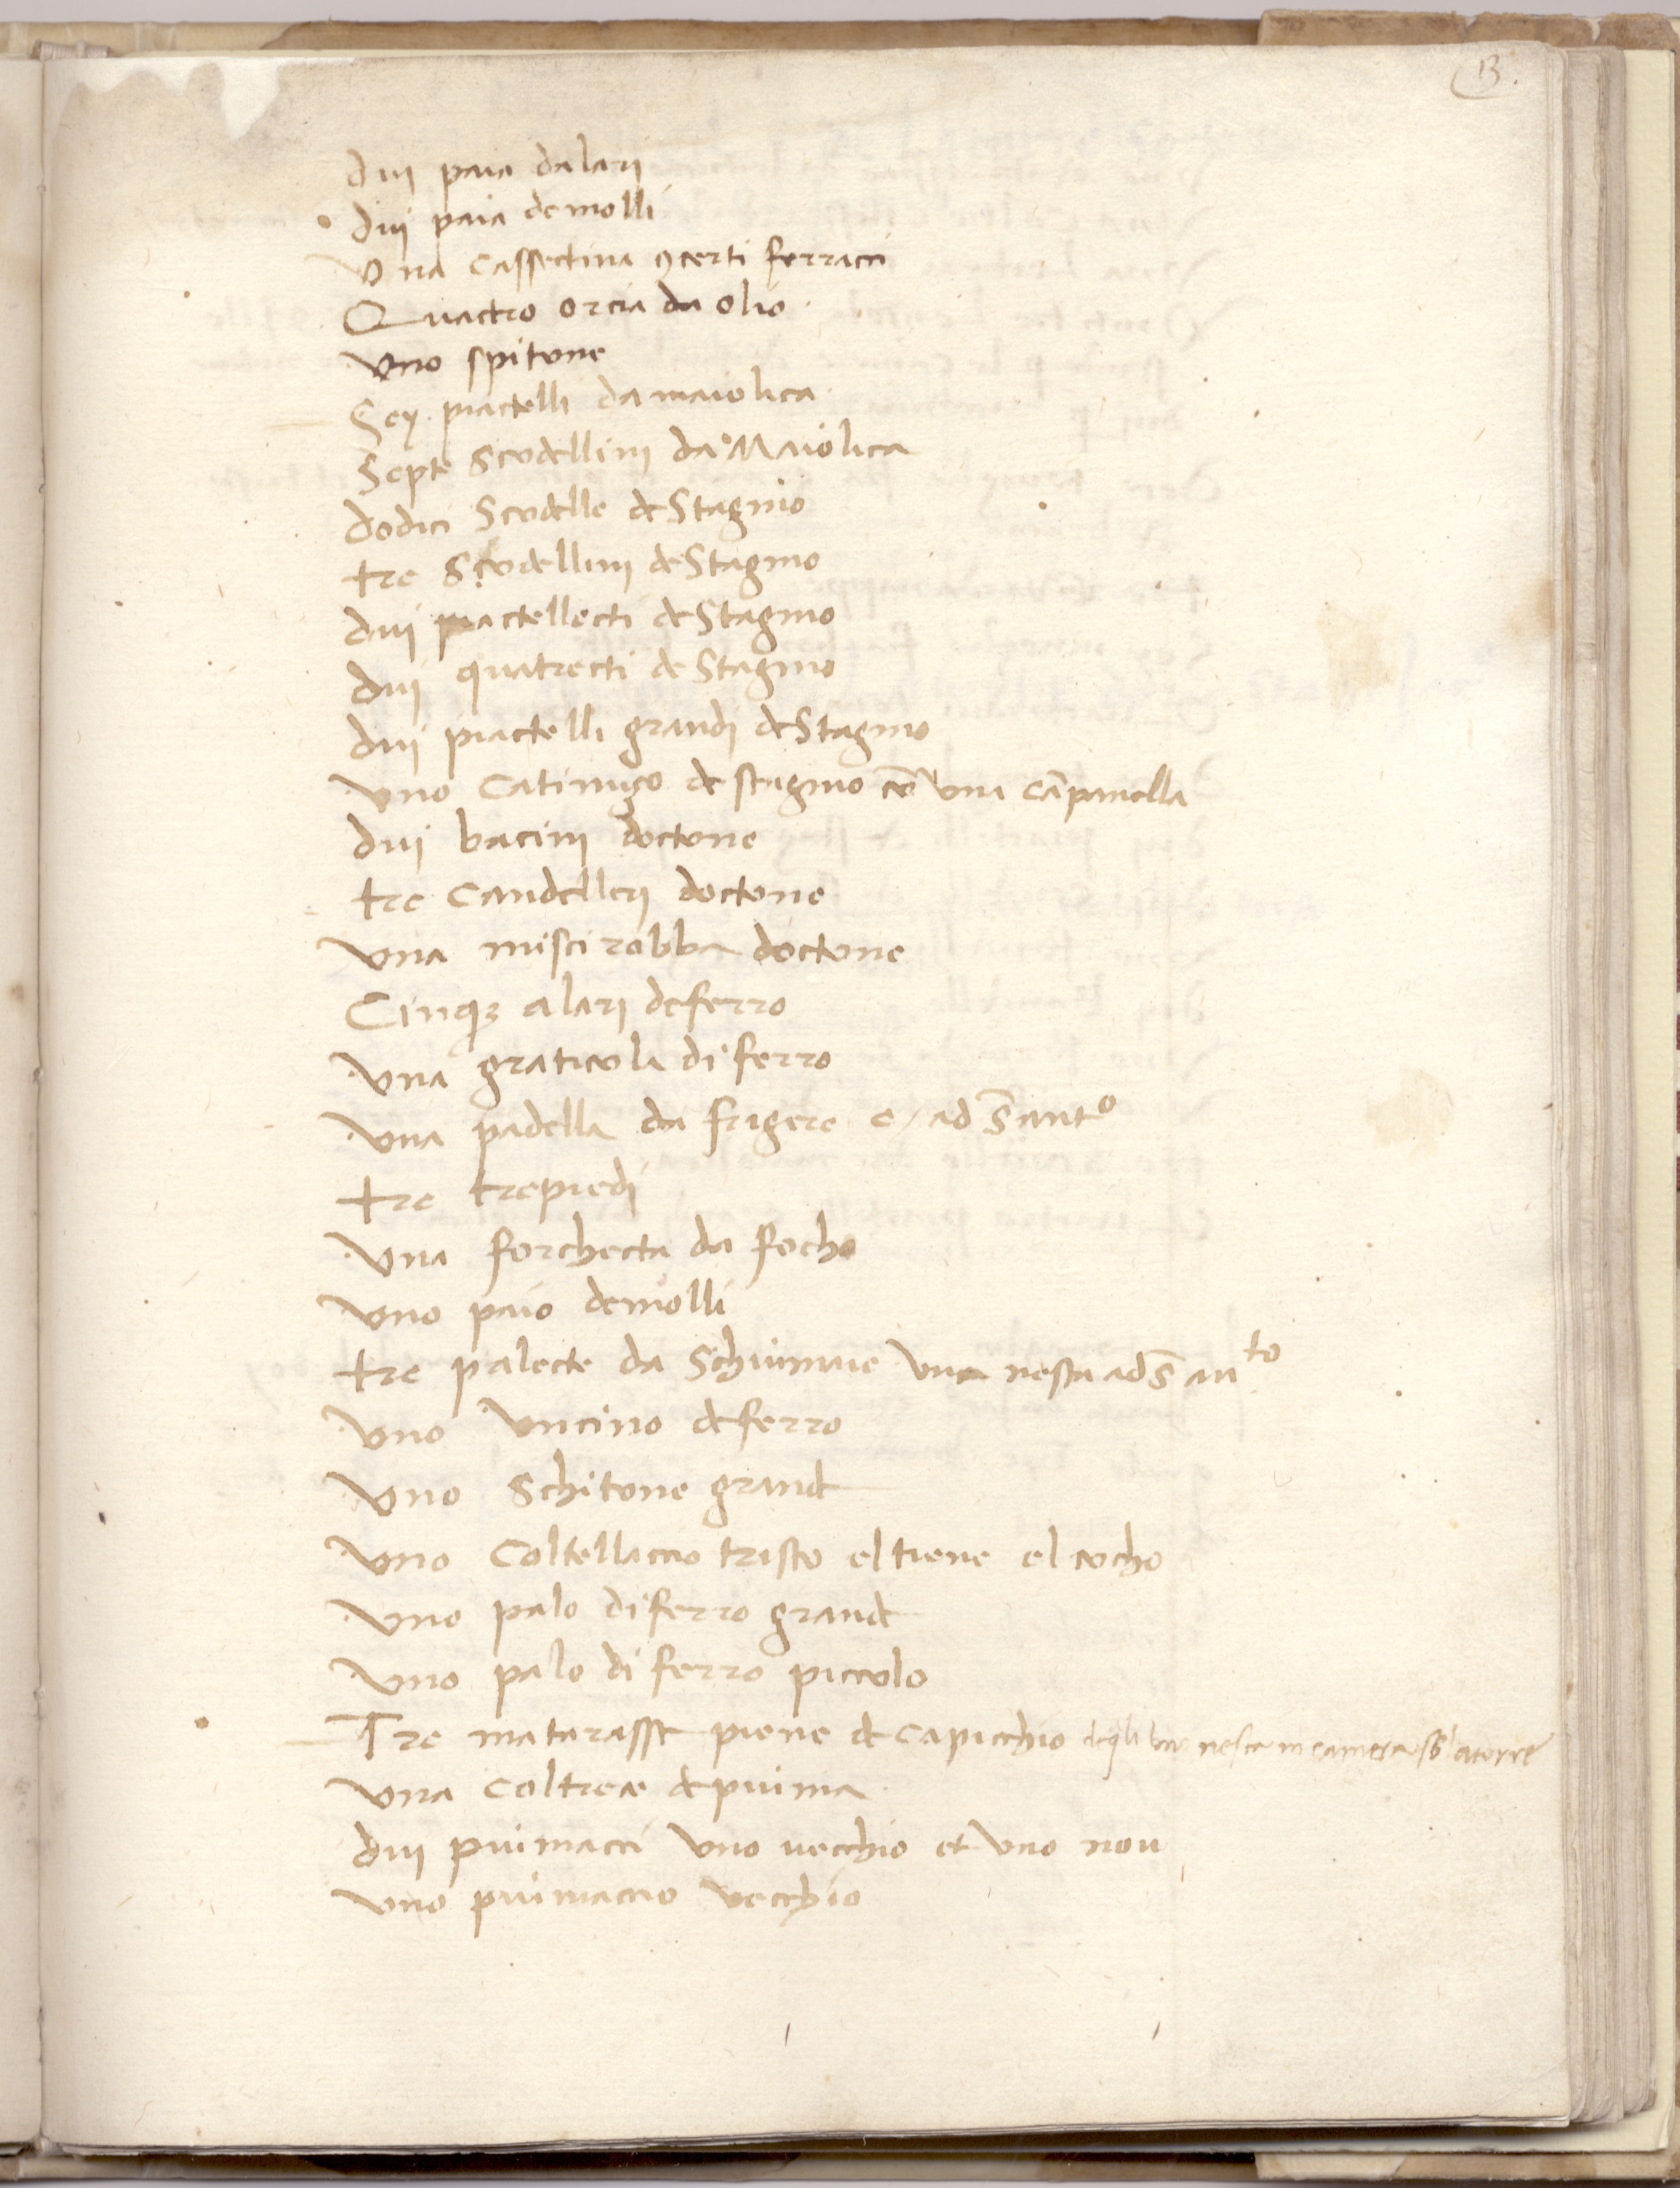 13
duj paia dalarj
duj paia de molli
Una cassectina 9certi ferracci
Quactro orcia da olio
Uno spitone
Sey piactelli da maiolica
Septe Scudellinj da Maiolica
dodici Scudelle de Stagnio
tre Scudellinj de Stagnio
duj piactellecti de Stagnio
duj quatrecti de Stagnio
duj piactelli grandj de Stagnio
Uno Catino de stagnio cū una cāpanella
duj bacinj doctone
tre Candellerj doctone
Una miscirobba doctone
Cinqꝫ alarj de ferro
Una graticula di ferro
Una padella da frigere e ad S ant⁰
tre trepiedj
Una forchecta da focho
Uno paio de molli
tre palecte da Schiumare una nesta ad S anto
Uno Uncino de ferro
Uno Schitone grande
Uno Coltellaccio tristo el tiene el cocho
Uno palo di ferro grande
Uno palo di ferro piccolo
Tre matarasse piene de capicchio nesta in camera
Una Coltrece de piuma
duj piumacci uno uecchio et uno nou
Uno piumaccio vecchio